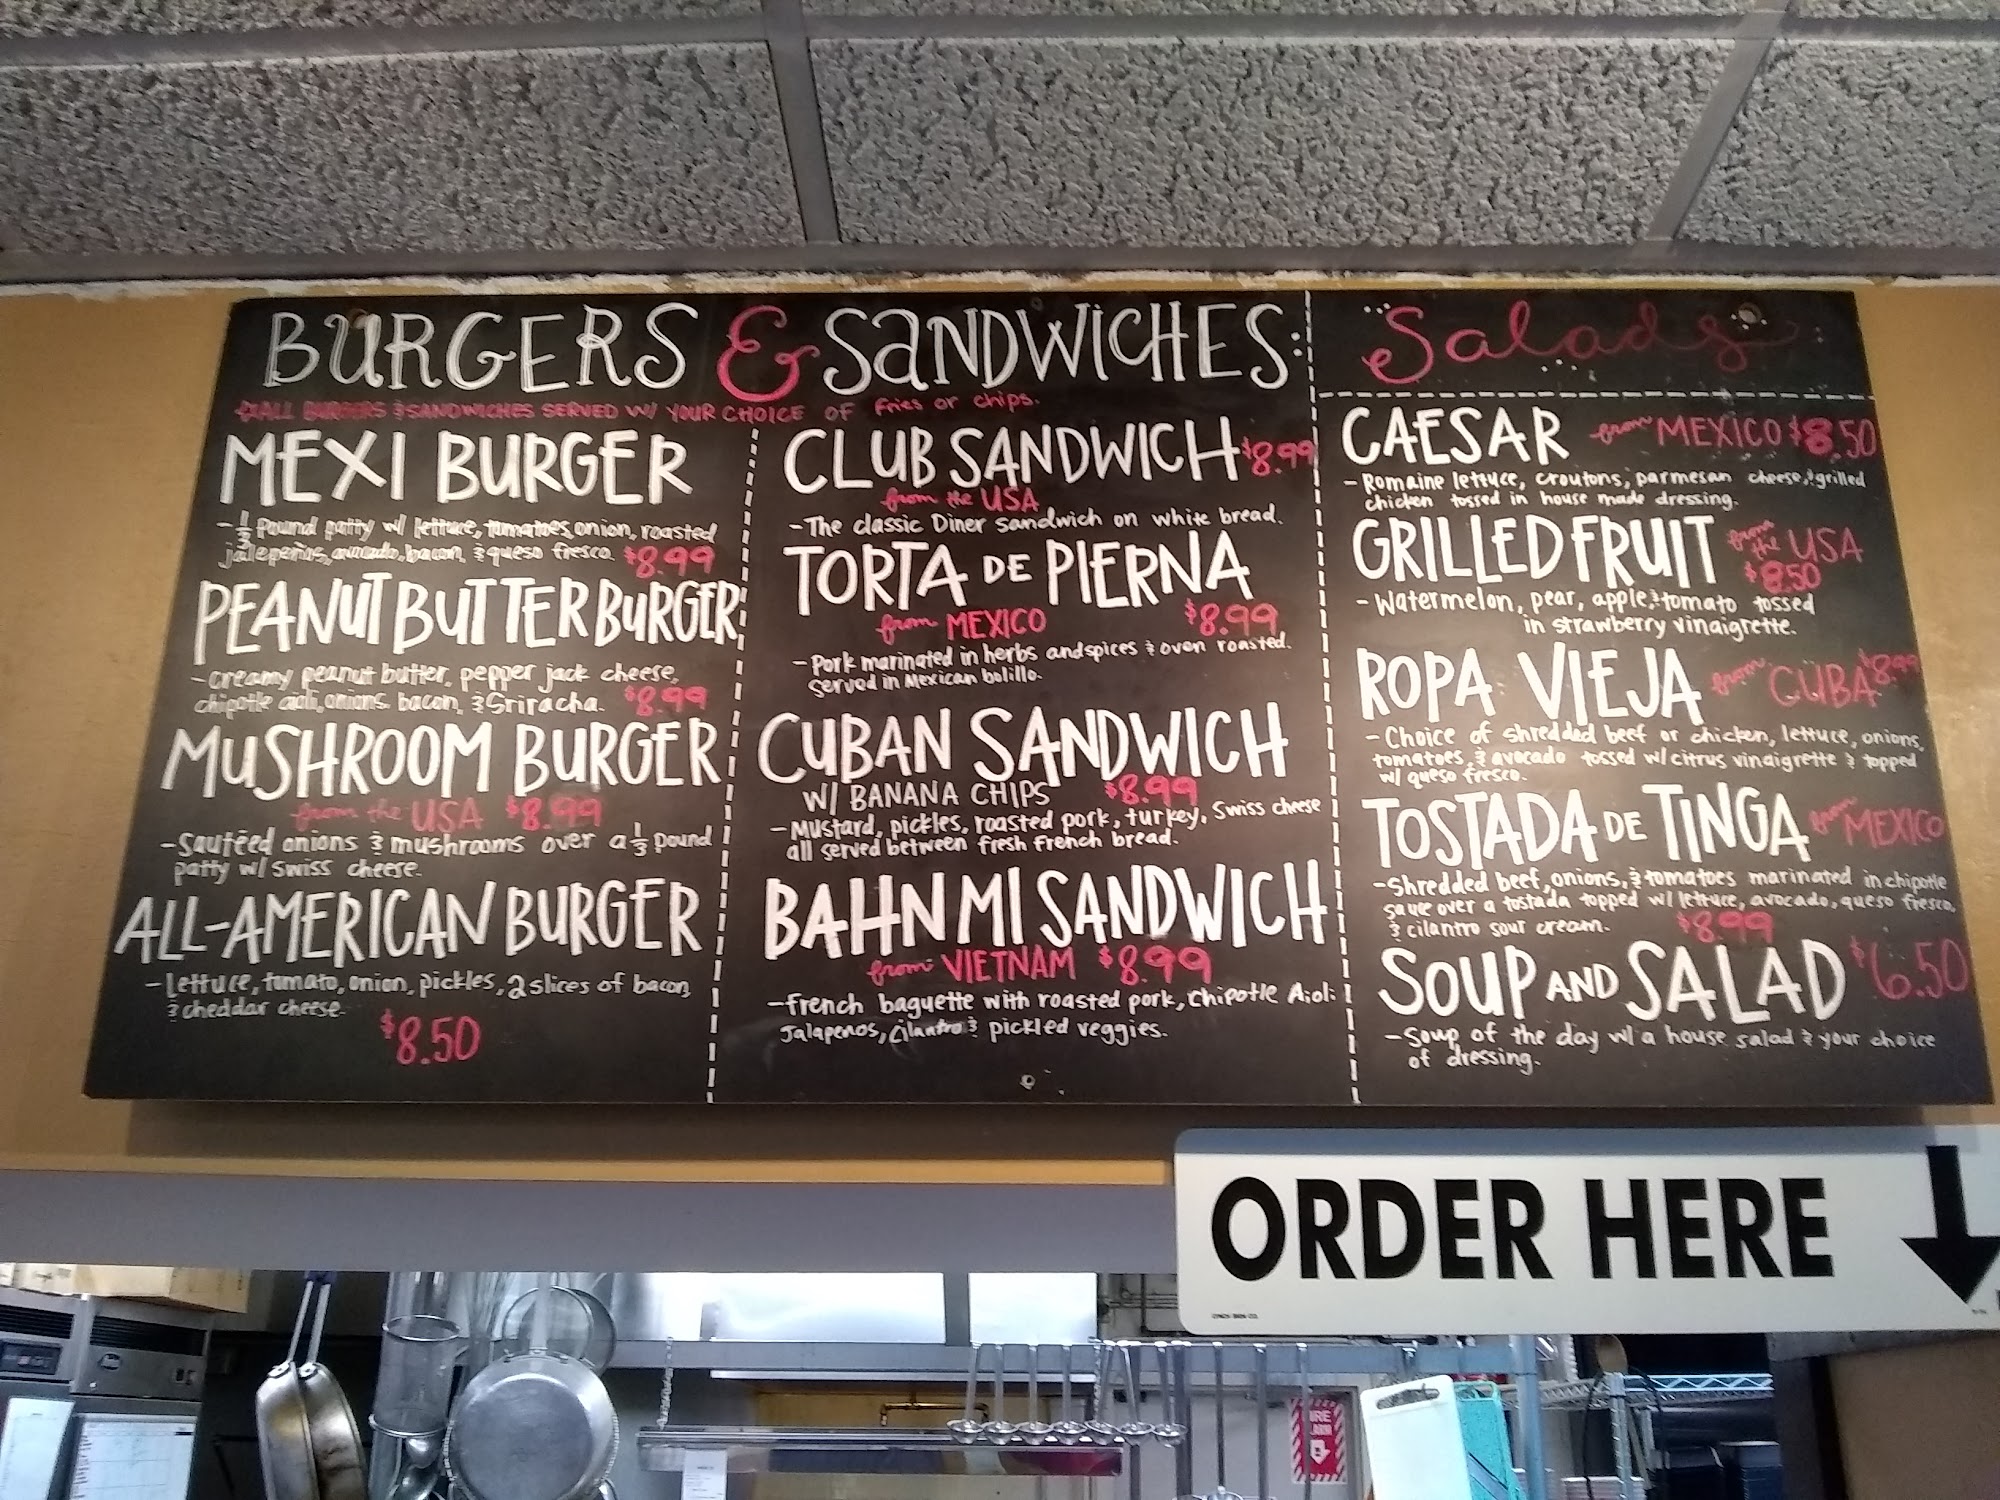 BURGERS & SANDWICHES:
ALL BURGERS & SANDWICHES SERVED W/ YOUR CHOICE OF fries or chips.
MEXI BURGER
- 1/3 pound patty w/ lettuce, tomatoes, onion, roasted
jalepeños, avacado, bacon, & queso fresco. $8.99
PEANUT BUTTER BURGER
- creamy peanut butter, pepper jack cheese,
chipotle aioli, onions, bacon, & Sriracha. $8.99
MUSHROOM BURGER
from the USA $8.99
- Sautéed onions & mushrooms over a 1/3 pound
patty w/ Swiss cheese.
ALL-AMERICAN BURGER
- lettuce, tomato, onion, pickles, 2 slices of bacon,
& cheddar cheese.
$8.50
CLUB SANDWICH $8.99
from the USA
- The classic Diner sandwich on white bread.
TORTA DE PIERNA
from MEXICO $8.99
- Pork marinated in herbs and spices & oven roasted.
served in Mexican bolillo.
CUBAN SANDWICH
W/ BANANA CHIPS $8.99
- Mustard, pickles, roasted pork, turkey, Swiss cheese
all served between fresh French bread.
BAHN MI SANDWICH
from VIETNAM $8.99
- french baguette with roasted pork, Chipotle Aioli
Jalapenos, cilantro & pickled veggies.
Salads
CAESAR from MEXICO $8.50
- Romaine lettuce, croutons, parmesan cheese, & grilled
chicken tossed in house made dressing.
GRILLED FRUIT from the USA
$8.50
- Watermelon, pear, apple, & tomato tossed
in strawberry vinaigrette.
ROPA VIEJA from CUBA $8.99
- Choice of shredded beef or chicken, lettuce, onions,
tomatoes, & avocado tossed w/ citrus vinaigrette & topped
w/ queso fresco.
TOSTADA DE TINGA from MEXICO
- Shredded beef, onions, & tomatoes marinated in chipotle
sauce over a tostada topped w/ lettuce, avocado, queso fresco,
& cilantro sour cream. $8.99
SOUP AND SALAD $6.50
- Soup of the day w/ a house salad & your choice
of dressing.
ORDER HERE